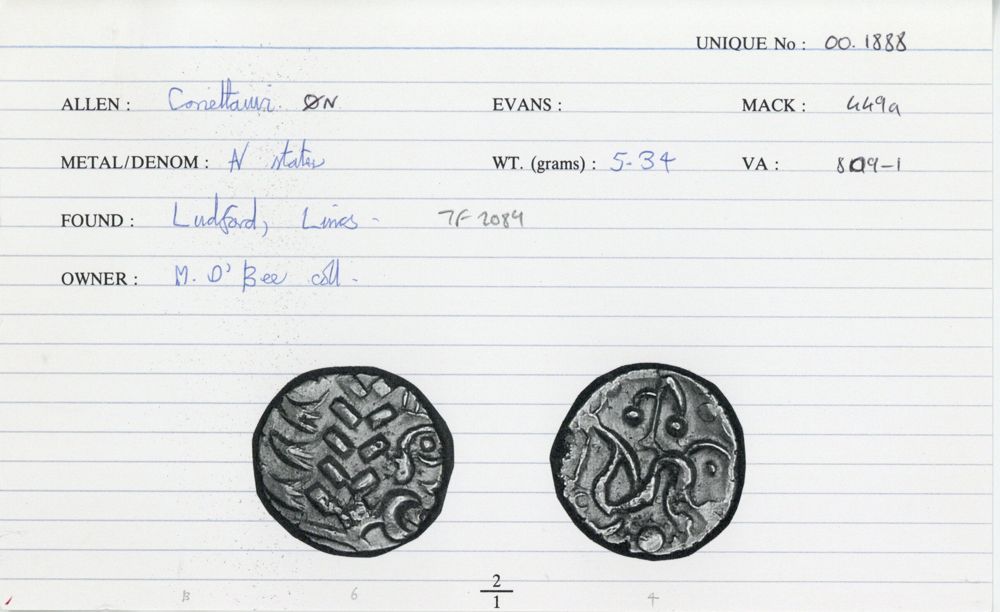 UNIQUE No : 00.1888
ALLEN : Corieltauvi ØN EVANS : MACK : 449a
METAL/DENOM : N stater WT. (grams) : 5.34 VA : 809-1
FOUND : Ludford, Lincs - TF 2089
OWNER : M. O'Bee coll.
2
B 6 1 4